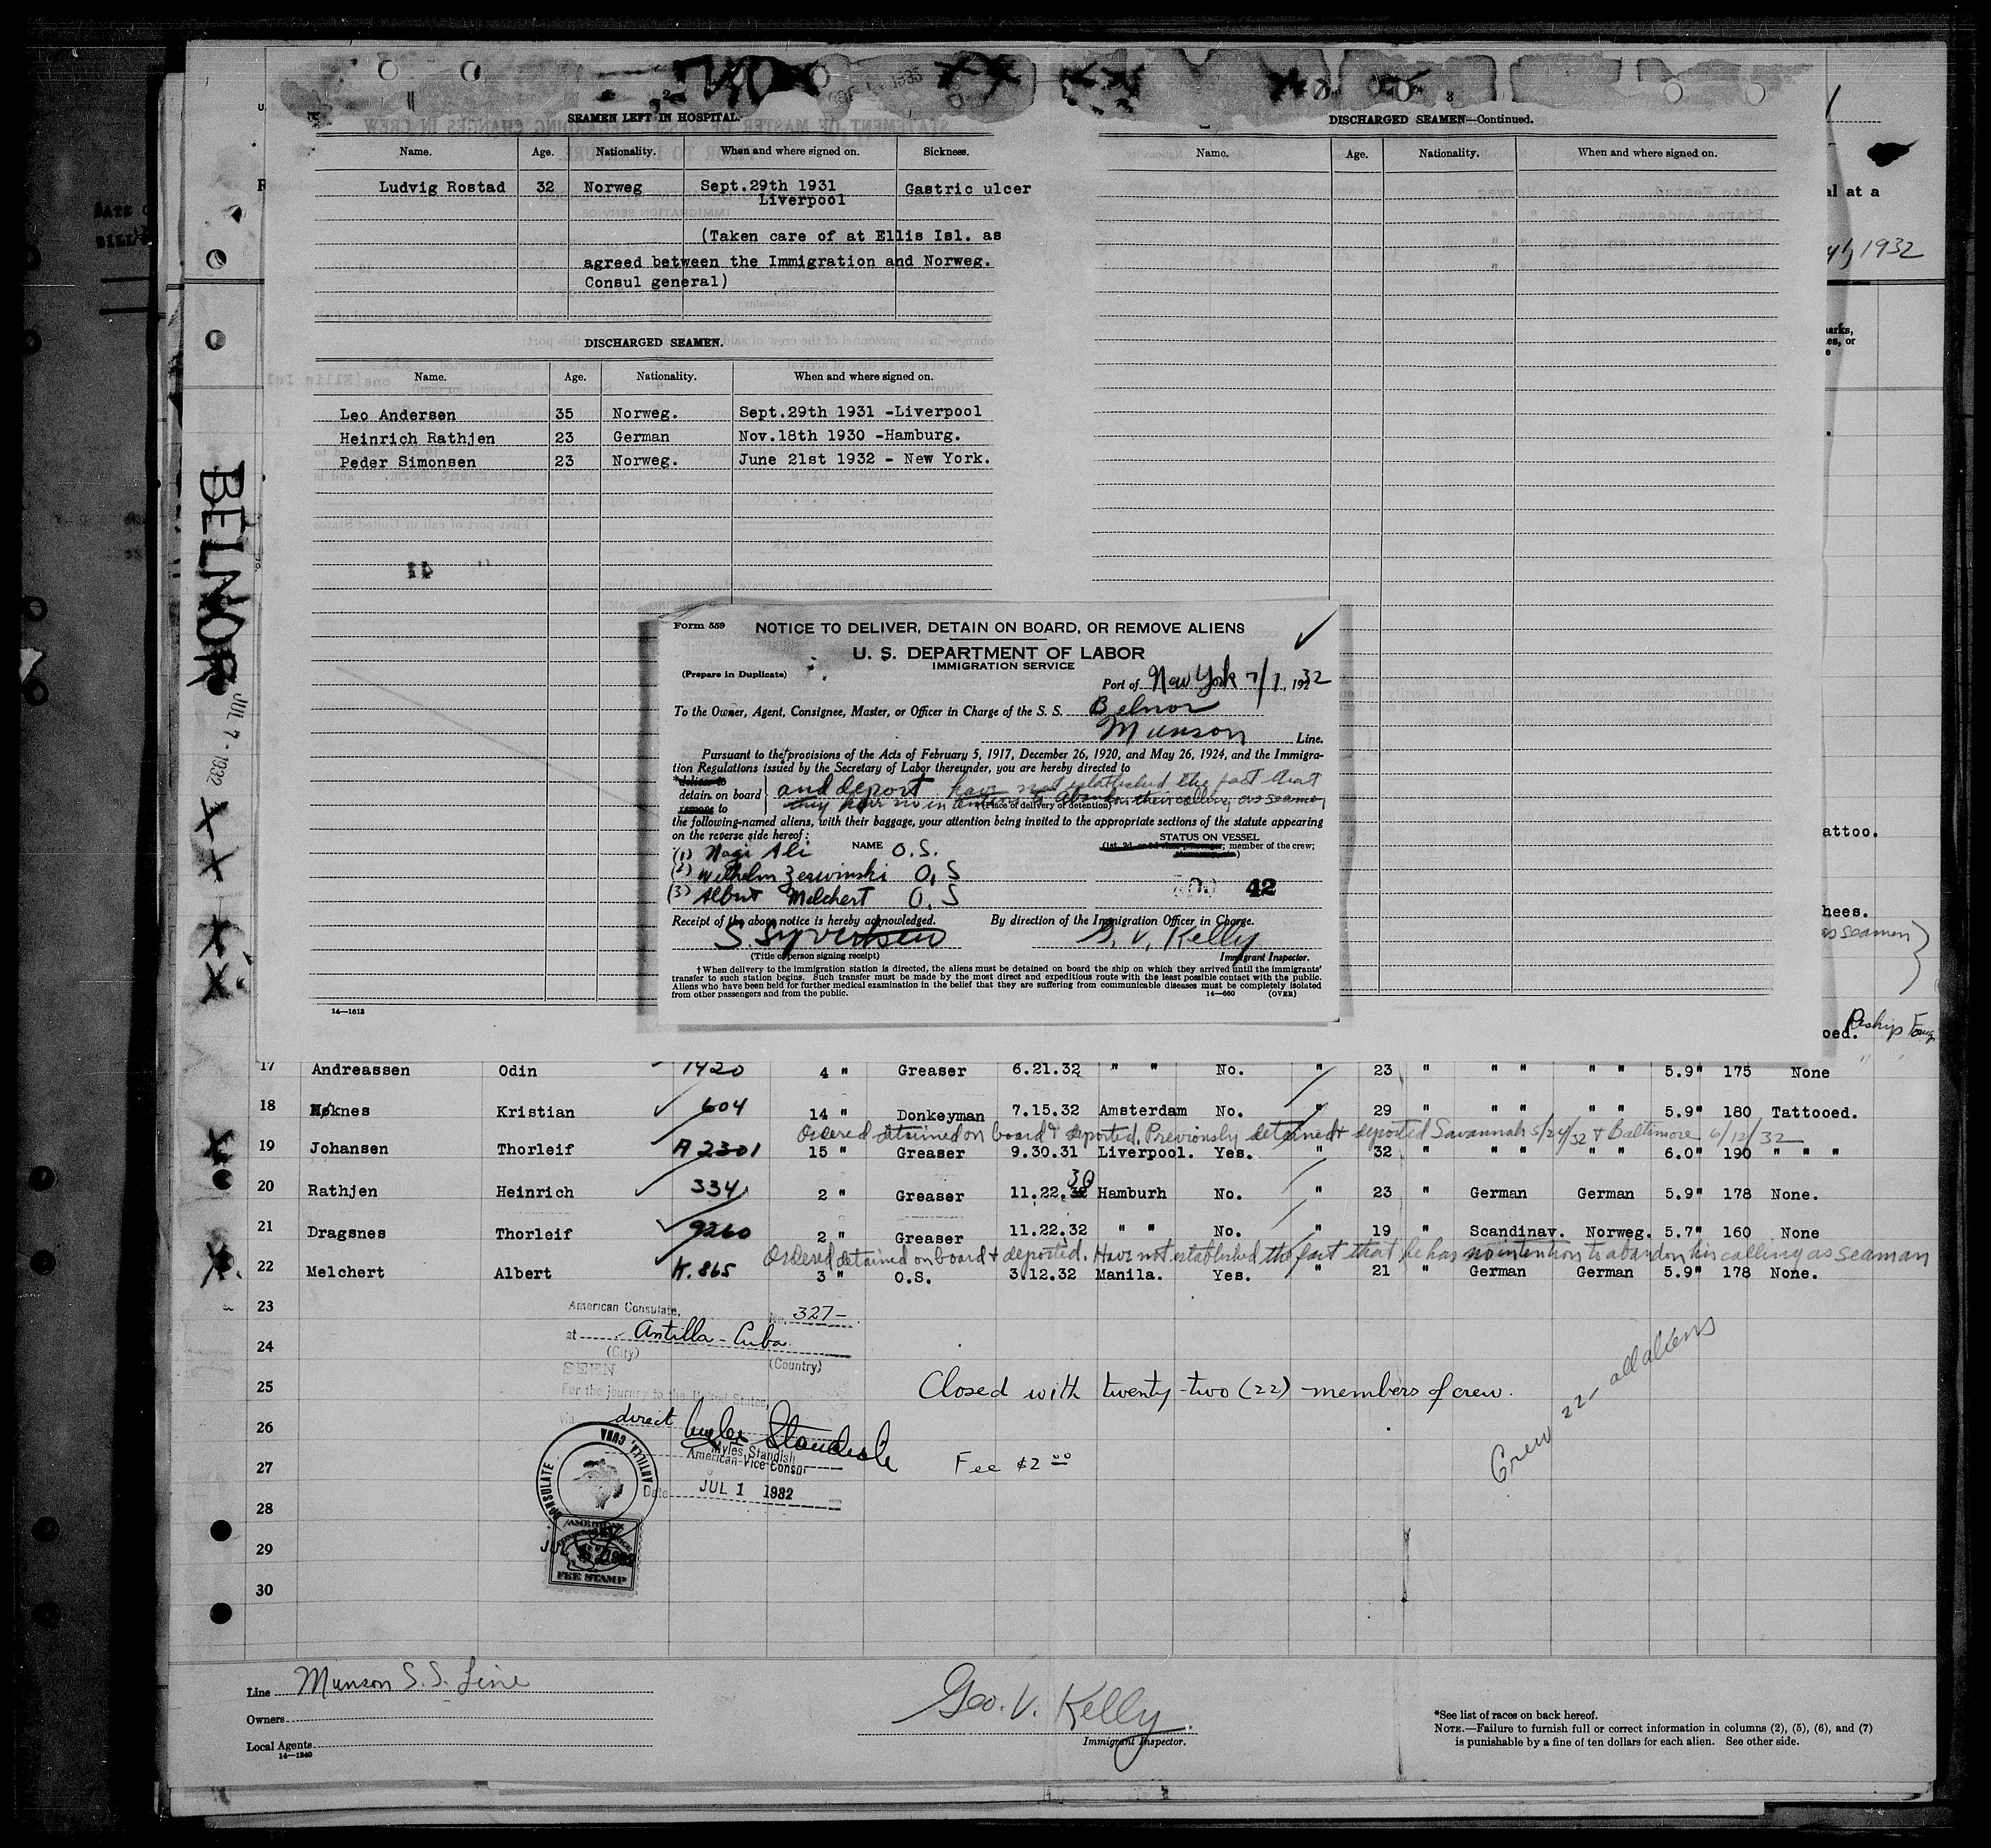 SEAMEN LEFT IN HOSPITAL.
Name. Age. Nationality. When and where signed on. Sickness.
Ludvig Rostad 32 Norweg Sept.29th 1931 Gastric ulcer
Liverpool
(Taken care of at Ellis Isl. as
agreed between the Immigration and Norweg.
Consul general)
DISCHARGED SEAMEN.
Name. Age. Nationality. When and where signed on.
Leo Andersen 35 Norweg. Sept.29th 1931 -Liverpool
Heinrich Rathjen 23 German Nov.18th 1930 -Hamburg.
Peder Simonsen 23 Norweg. June 21st 1932 - New York.
41
14—1613
3
DISCHARGED SEAMEN—Continued.
Name. Age. Nationality. When and where signed on.
al at a
1932
arks,
es, or
attoo.
hees.
as seamen
oed.
BELNOR
JUL 7 - 1932
Form 559 NOTICE TO DELIVER, DETAIN ON BOARD, OR REMOVE ALIENS
U. S. DEPARTMENT OF LABOR
IMMIGRATION SERVICE
(Prepare in Duplicate)
Port of New York 7/7, 1932
To the Owner, Agent, Consignee, Master, or Officer in Charge of the S. S. Belnor
Munson Line.
Pursuant to the provisions of the Acts of February 5, 1917, December 26, 1920, and May 26, 1924, and the Immigra-
tion Regulations issued by the Secretary of Labor thereunder, you are hereby directed to
*deliver to
detain on board and deport have not established the fact that
remove to they have no intentions to abandon their calling as seamen
(Place of delivery or detention)
the following-named aliens, with their baggage, your attention being invited to the appropriate sections of the statute appearing
on the reverse side hereof:
NAME STATUS ON VESSEL
member of the crew;
(1) Nagi Ali O.S.
(2) Wilhelm Zeswinski O.S
(3) Albert Melchert O.S
42
Receipt of the above notice is hereby acknowledged. By direction of the Immigration Officer in Charge.
S. Syvertsen G. V. Kelly
(Title of person signing receipt) Immigrant Inspector.
†When delivery to the immigration station is directed, the aliens must be detained on board the ship on which they arrived until the immigrants'
transfer to such station begins. Such transfer must be made by the most direct and expeditious route with the least possible contact with the public.
Aliens who have been held for further medical examination in the belief that they are suffering from communicable diseases must be completely isolated
from other passengers and from the public. 14—660 (OVER)
17 Andreassen Odin 1420 4 " Greaser 6.21.32 " " No. " 23 " " " " " 5.9" 175 None
18 Høknes Kristian 604 14 " Donkeyman 7.15.32 Amsterdam No. " 29 " " " " " 5.9" 180 Tattooed.
Ordered detained on board & deported. Previously detained & deported Savannah 5/24/32 & Baltimore 6/12/32
19 Johansen Thorleif A 2301 15 " Greaser 9.30.31 Liverpool. Yes. " 32 " " " " " 6.0" 190 " " "
20 Rathjen Heinrich 334 2 " Greaser 11.22.30 Hamburh No. " 23 " German German 5.9" 178 None.
21 Dragsnes Thorleif 9260 2 " Greaser 11.22.32 " " No. " 19 " Scandinav. Norweg. 5.7" 160 None
Ordered detained on board & deported. Have not established the fact that he has no intentions to abandon his calling as seaman
22 Melchert Albert K.865 3 " O.S. 3.12.32 Manila. Yes. " 21 " German German 5.9" 178 None.
23
24
25
26
27
28
29
30
American Consulate.
No. 327-
at Antilla - Cuba
(City) (Country)
SEEN
For the journey to the United States,
via direct
Myles Standish
Myles Standish
American Vice Consul
Date JUL 1 1932
CONSULATE ANTILLA, CUBA
AMERICAN
FEE STAMP
Closed with twenty-two (22) members of crew.
Fee $2 00
Crew 22 - all aliens
Line Munson S.S. Line
Owners
Local Agents
14—1240
Geo. V. Kelly.
Immigrant Inspector.
*See list of races on back hereof.
NOTE.—Failure to furnish full or correct information in columns (2), (5), (6), and (7)
is punishable by a fine of ten dollars for each alien. See other side.